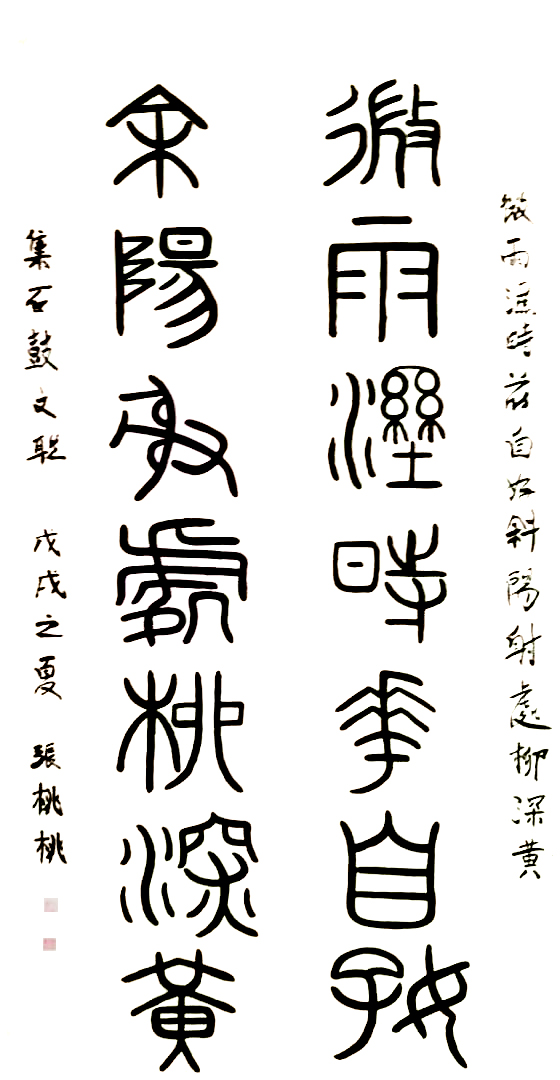 微雨溼時花自好斜陽射處柳深黄
微雨溼時華自好
余陽射處柳深黃
集石鼓文聯 戊戌之夏 張桃桃